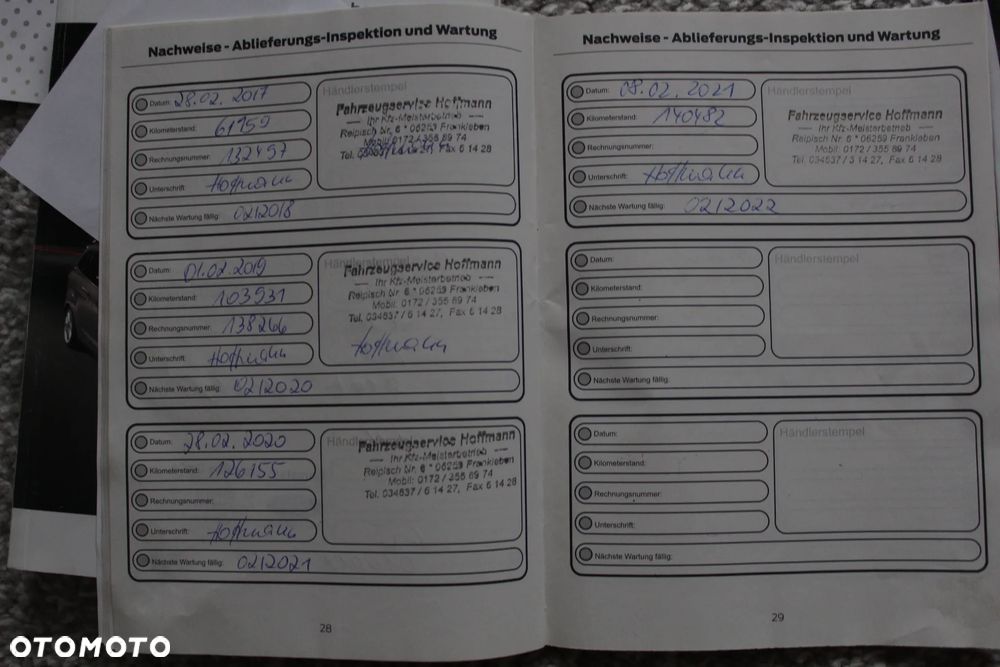 Nachweise - Ablieferungs-Inspektion und Wartung
Datum: 28.02.2017
Kilometerstand: 61759
Rechnungsnummer: 132497
Unterschrift: Hoffmann
Nächste Wartung fällig: 02/2018
Händlerstempel
Fahrzeugservice Hoffmann
— Ihr Kfz-Meisterbetrieb —
Reipisch Nr. 6 * 06259 Frankleben
Mobil: 0172 / 355 89 74
Tel. 034637 / 6 14 27, Fax 6 14 28
Datum: 01.02.2019
Kilometerstand: 103931
Rechnungsnummer: 138266
Unterschrift: Hoffmann
Nächste Wartung fällig: 02/2020
Fahrzeugservice Hoffmann
— Ihr Kfz-Meisterbetrieb —
Reipisch Nr. 6 * 06259 Frankleben
Mobil: 0172 / 355 89 74
Tel. 034637 / 6 14 27, Fax 6 14 28
Hoffmann
Datum: 28.02.2020
Kilometerstand: 126155
Rechnungsnummer:
Unterschrift: Hoffmann
Nächste Wartung fällig: 02/2021
Händlerstempel
Fahrzeugservice Hoffmann
— Ihr Kfz-Meisterbetrieb —
Reipisch Nr. 6 * 06259 Frankleben
Mobil: 0172 / 355 89 74
Tel. 034637 / 6 14 27, Fax 6 14 28
28
Nachweise - Ablieferungs-Inspektion und Wartung
Datum: 08.02.2021
Kilometerstand: 140482
Rechnungsnummer:
Unterschrift: Hoffmann
Nächste Wartung fällig: 02/2022
Händlerstempel
Fahrzeugservice Hoffmann
— Ihr Kfz-Meisterbetrieb
Reipisch Nr. 6 * 06259 Frankleben
Mobil: 0172 / 355 89 74
Tel. 034637 / 3 14 27, Fax 6 14 28
Datum:
Kilometerstand:
Rechnungsnummer:
Unterschrift:
Nächste Wartung fällig:
Händlerstempel
Datum:
Kilometerstand:
Rechnungsnummer:
Unterschrift:
Nächste Wartung fällig:
Händlerstempel
29
OTOMOTO